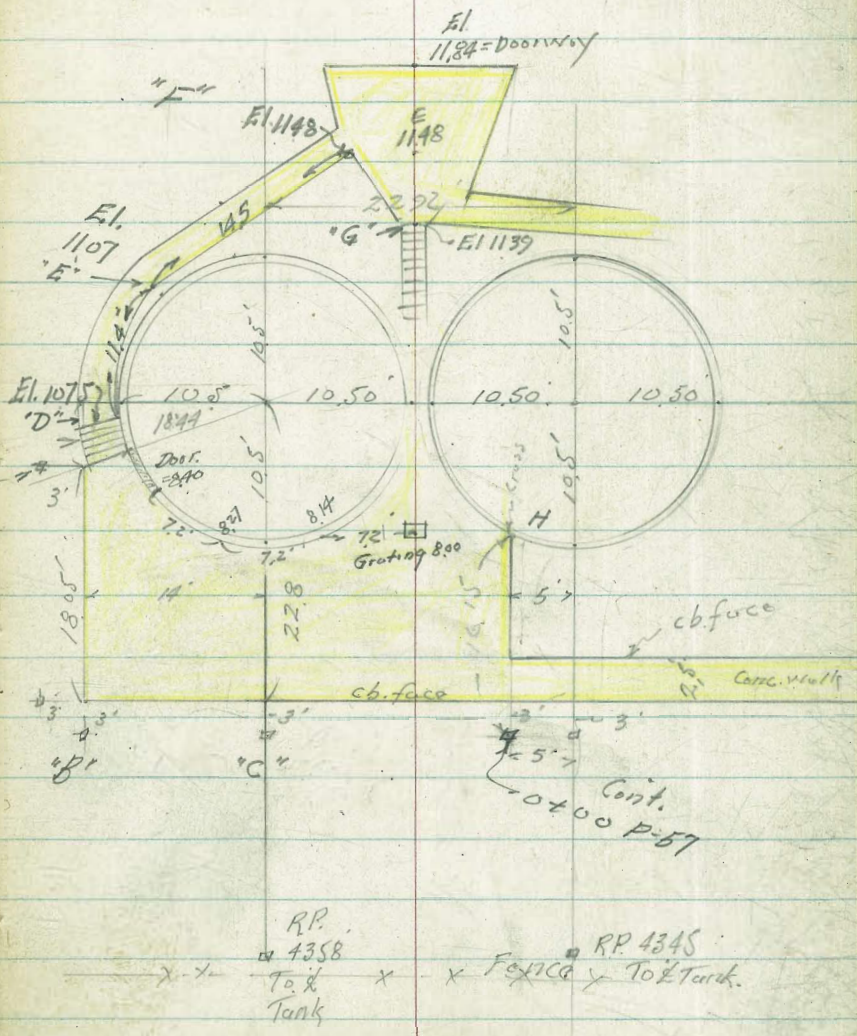 El.
11.84 = Doorway
"F"
El. 11.48
E
11.48
14.5
22.02
El.
11.07
"E"
"G"
El 11.39
11.4'
10.5'
10.5'
El. 10.75
"D"
10.5'
10.50'
10.50'
10.50'
18.44
Door.
=8.40
10.5'
10.5'
3'
7.2'
8.27
8.14
7.2'
7.2'
Grating 8.00
H
18.05'
14'
22.8
16.15'
5'
cb. face
cb. face
2.5'
Conc. walk
3'
3'
3'
3'
3'
"B"
"C"
5'
Cont.
0+00 P-57
R.P.
43.58
To ℄
Tank
Fence
R.P. 43.45
To ℄ Tank.